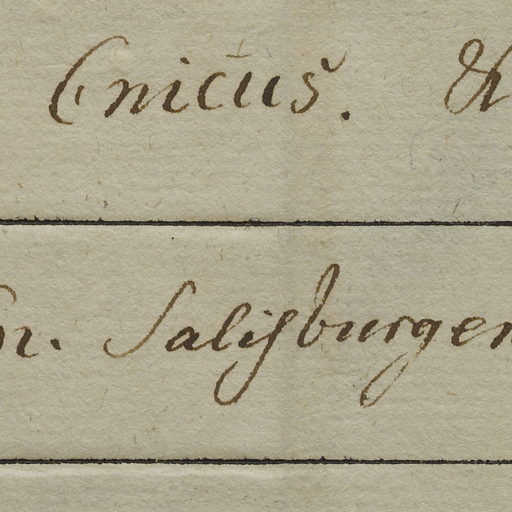 Cnicus. &
n. Salisburgen